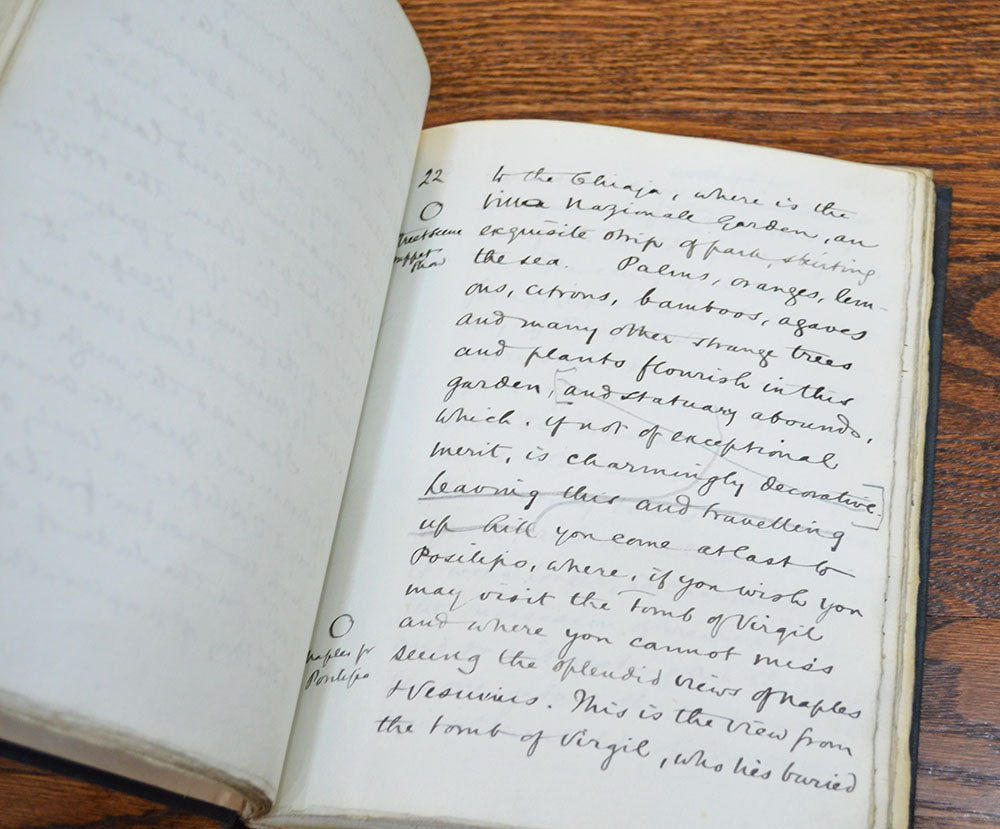 22
to the Chiaja, where is the
Villa Nazionale Garden, an
exquisite strip of park, skirting
the sea. Palms, oranges, lem-
ons, citrons, bamboos, agaves
and many other strange trees
and plants flourish in this
garden, [and statuary abounds,
which, if not of exceptional
merit, is charmingly decorative.]
Leaving this and travelling
up hill you come at last to
Posilipo, where, if you wish you
may visit the Tomb of Virgil
and where you cannot miss
seeing the splendid views of Naples
& Vesuvius. This is the view from
the tomb of Virgil, who lies buried
Street scene
puppet
show
Naples fr
Posilipo